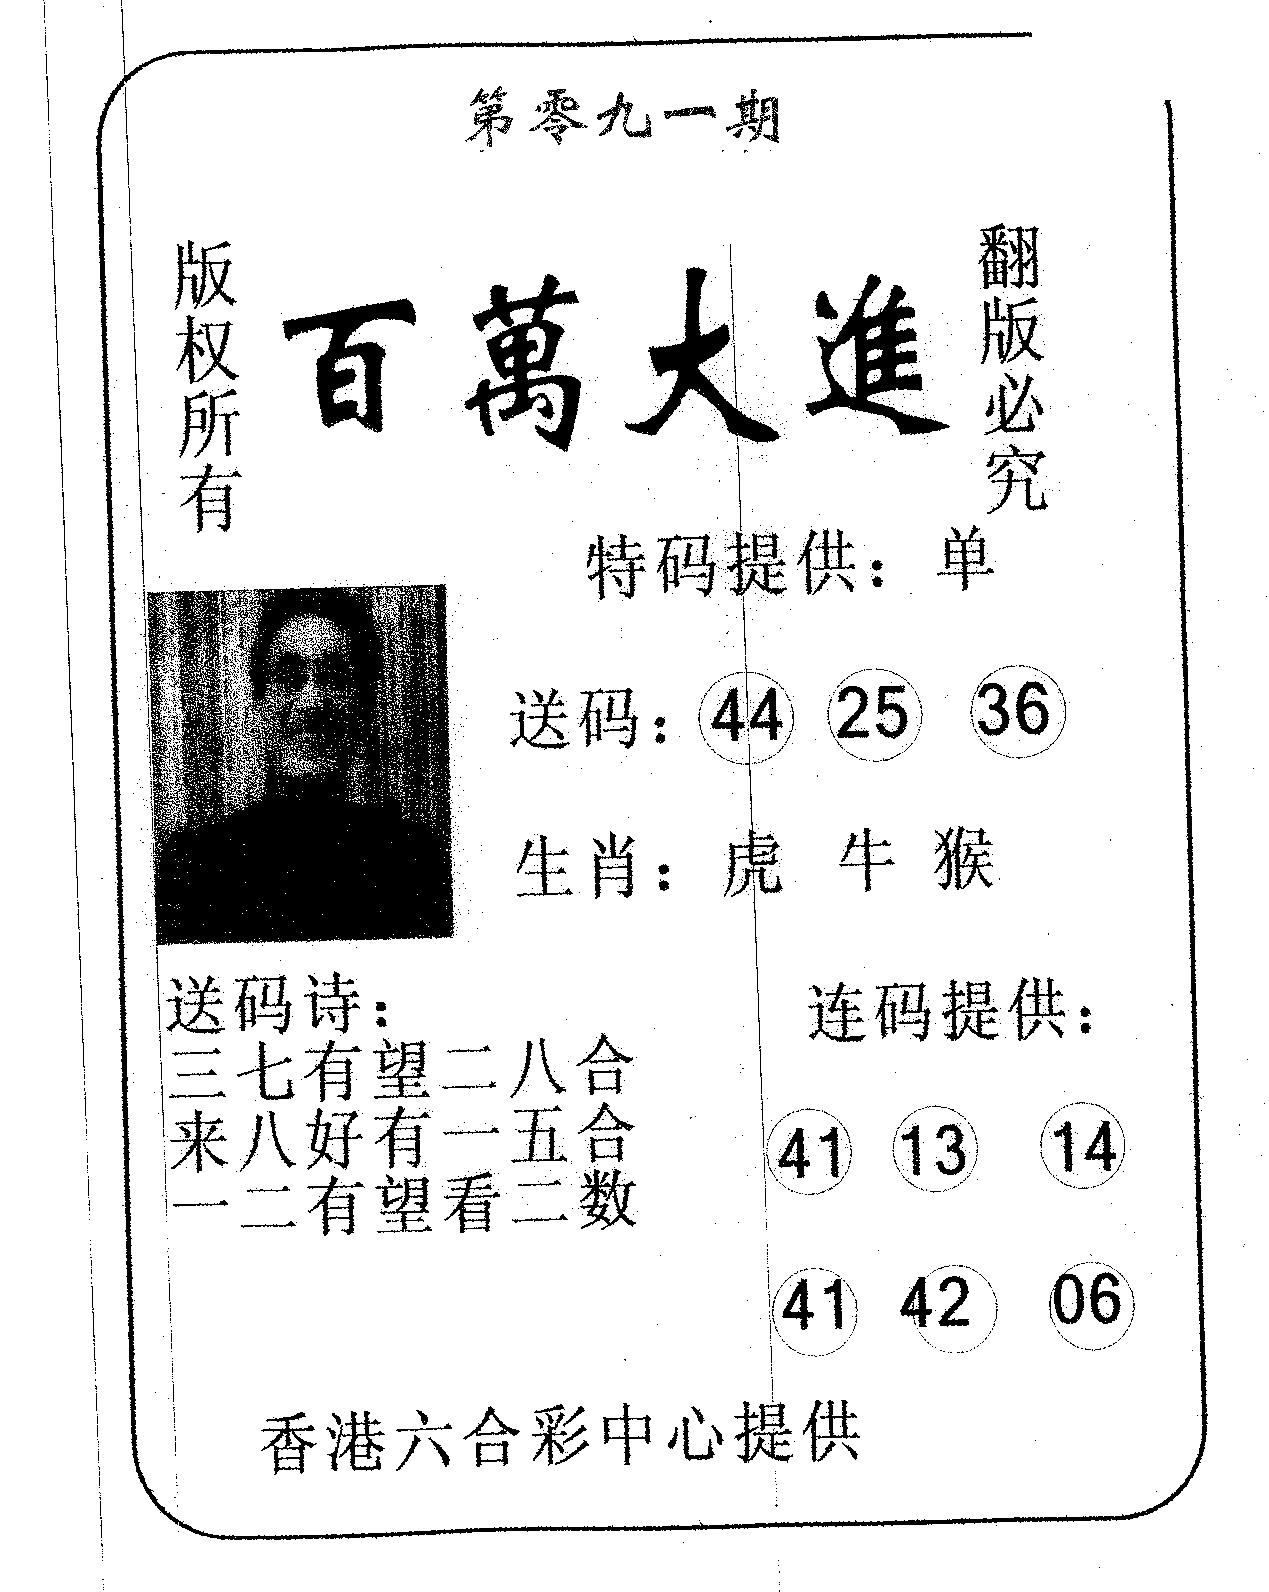 第零九一期
版权所有
百萬大進
翻版必究
特码提供：单
送码：44 25 36
生肖：虎 牛 猴
送码诗：
三七有望二八合
来八好有一五合
一二有望看二数
连码提供：
41 13 14
41 42 06
香港六合彩中心提供